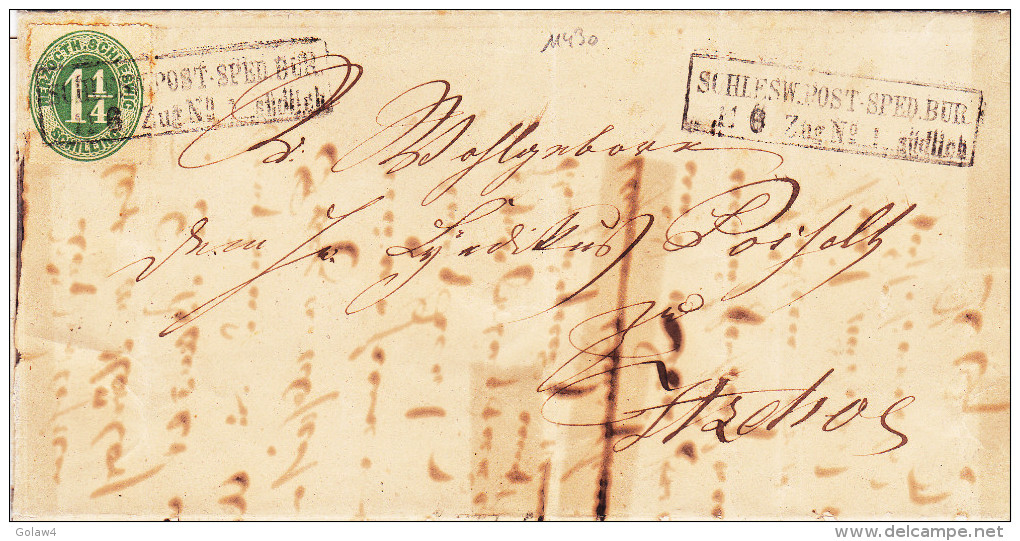 M430
HERZOGTH. SCHLESWIG
1 1/4
SCHILLING
POST-SPED.BUR.
6 Zug No 1 südlich
SCHLESW. POST-SPED.BUR.
11 6 Zug No 1 südlich
Wohlgeboren
dem Hr. Syndikus
zu
Itzehoe
Golaw4
www.delcampe.net